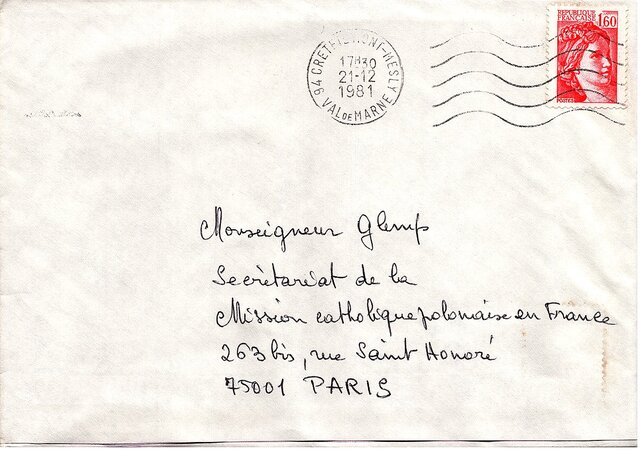 94 CRETEIL MONT-MESLY
17H30
21-12
1981
VAL DE MARNE
REPUBLIQUE
FRANCAISE
1,60
POSTES
Monseigneur Glemp
Secrétariat de la
Mission catholique polonaise en France
263 bis, rue Saint Honoré
75001 PARIS